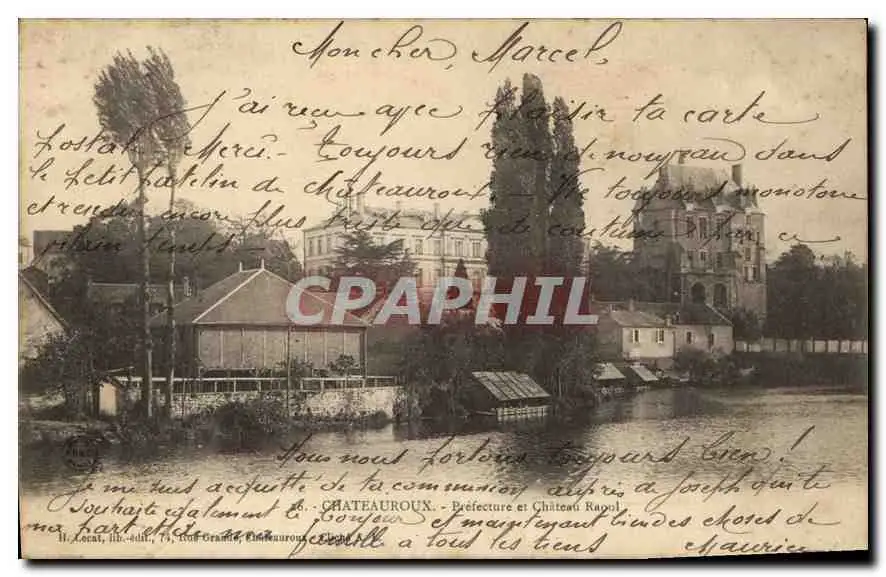 Mon cher Marcel
J'ai reçu avec plaisir ta carte
postale Merci. - Toujours rien de nouveau dans
le petit patelin de chateauroux - Vie toujours monotone
et rendue encore plus triste que de coutume par ce
vilain temps
CPAPHIL
Nous nous portons toujours bien !
je me suis acquitté de ta commission auprès de Joseph qui te
souhaite également le bonjour et maintenant bien des choses de
ma part et de ma famille à tous les tiens Maurice
26. - CHATEAUROUX. - Préfecture et Château Raoul
H. Lecat, lib.-édit., 74, Rue Grande, Châteauroux. - Cliché A. V.